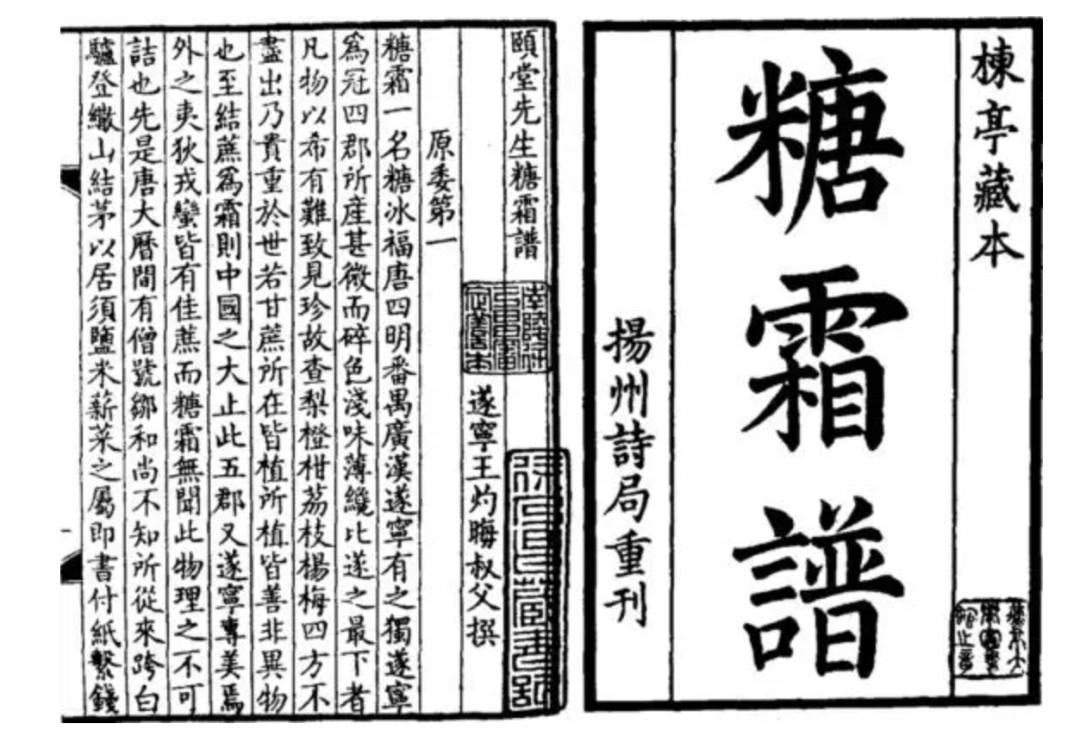 楝亭藏本
糖霜譜
揚州詩局重刊
頤堂先生糖霜譜
遂寧王灼晦叔父撰
原委第一
糖霜一名糖冰福唐四明番禺廣漢遂寧有之獨遂寧
爲冠四郡所產甚微而碎色淺味薄纔比遂之最下者
凡物以希有難致見珍故查梨橙柑荔枝楊梅四方不
盡出乃貴重於世若甘蔗所在皆植所植皆善非異物
也至結蔗爲霜則中國之大止此五郡又遂寧專美焉
外之夷狄戎蠻皆有佳蔗而糖霜無聞此物理之不可
詰也先是唐大曆間有僧號鄒和尚不知所從來跨白
驢登繖山結茅以居須鹽米薪菜之屬即書付紙繫錢